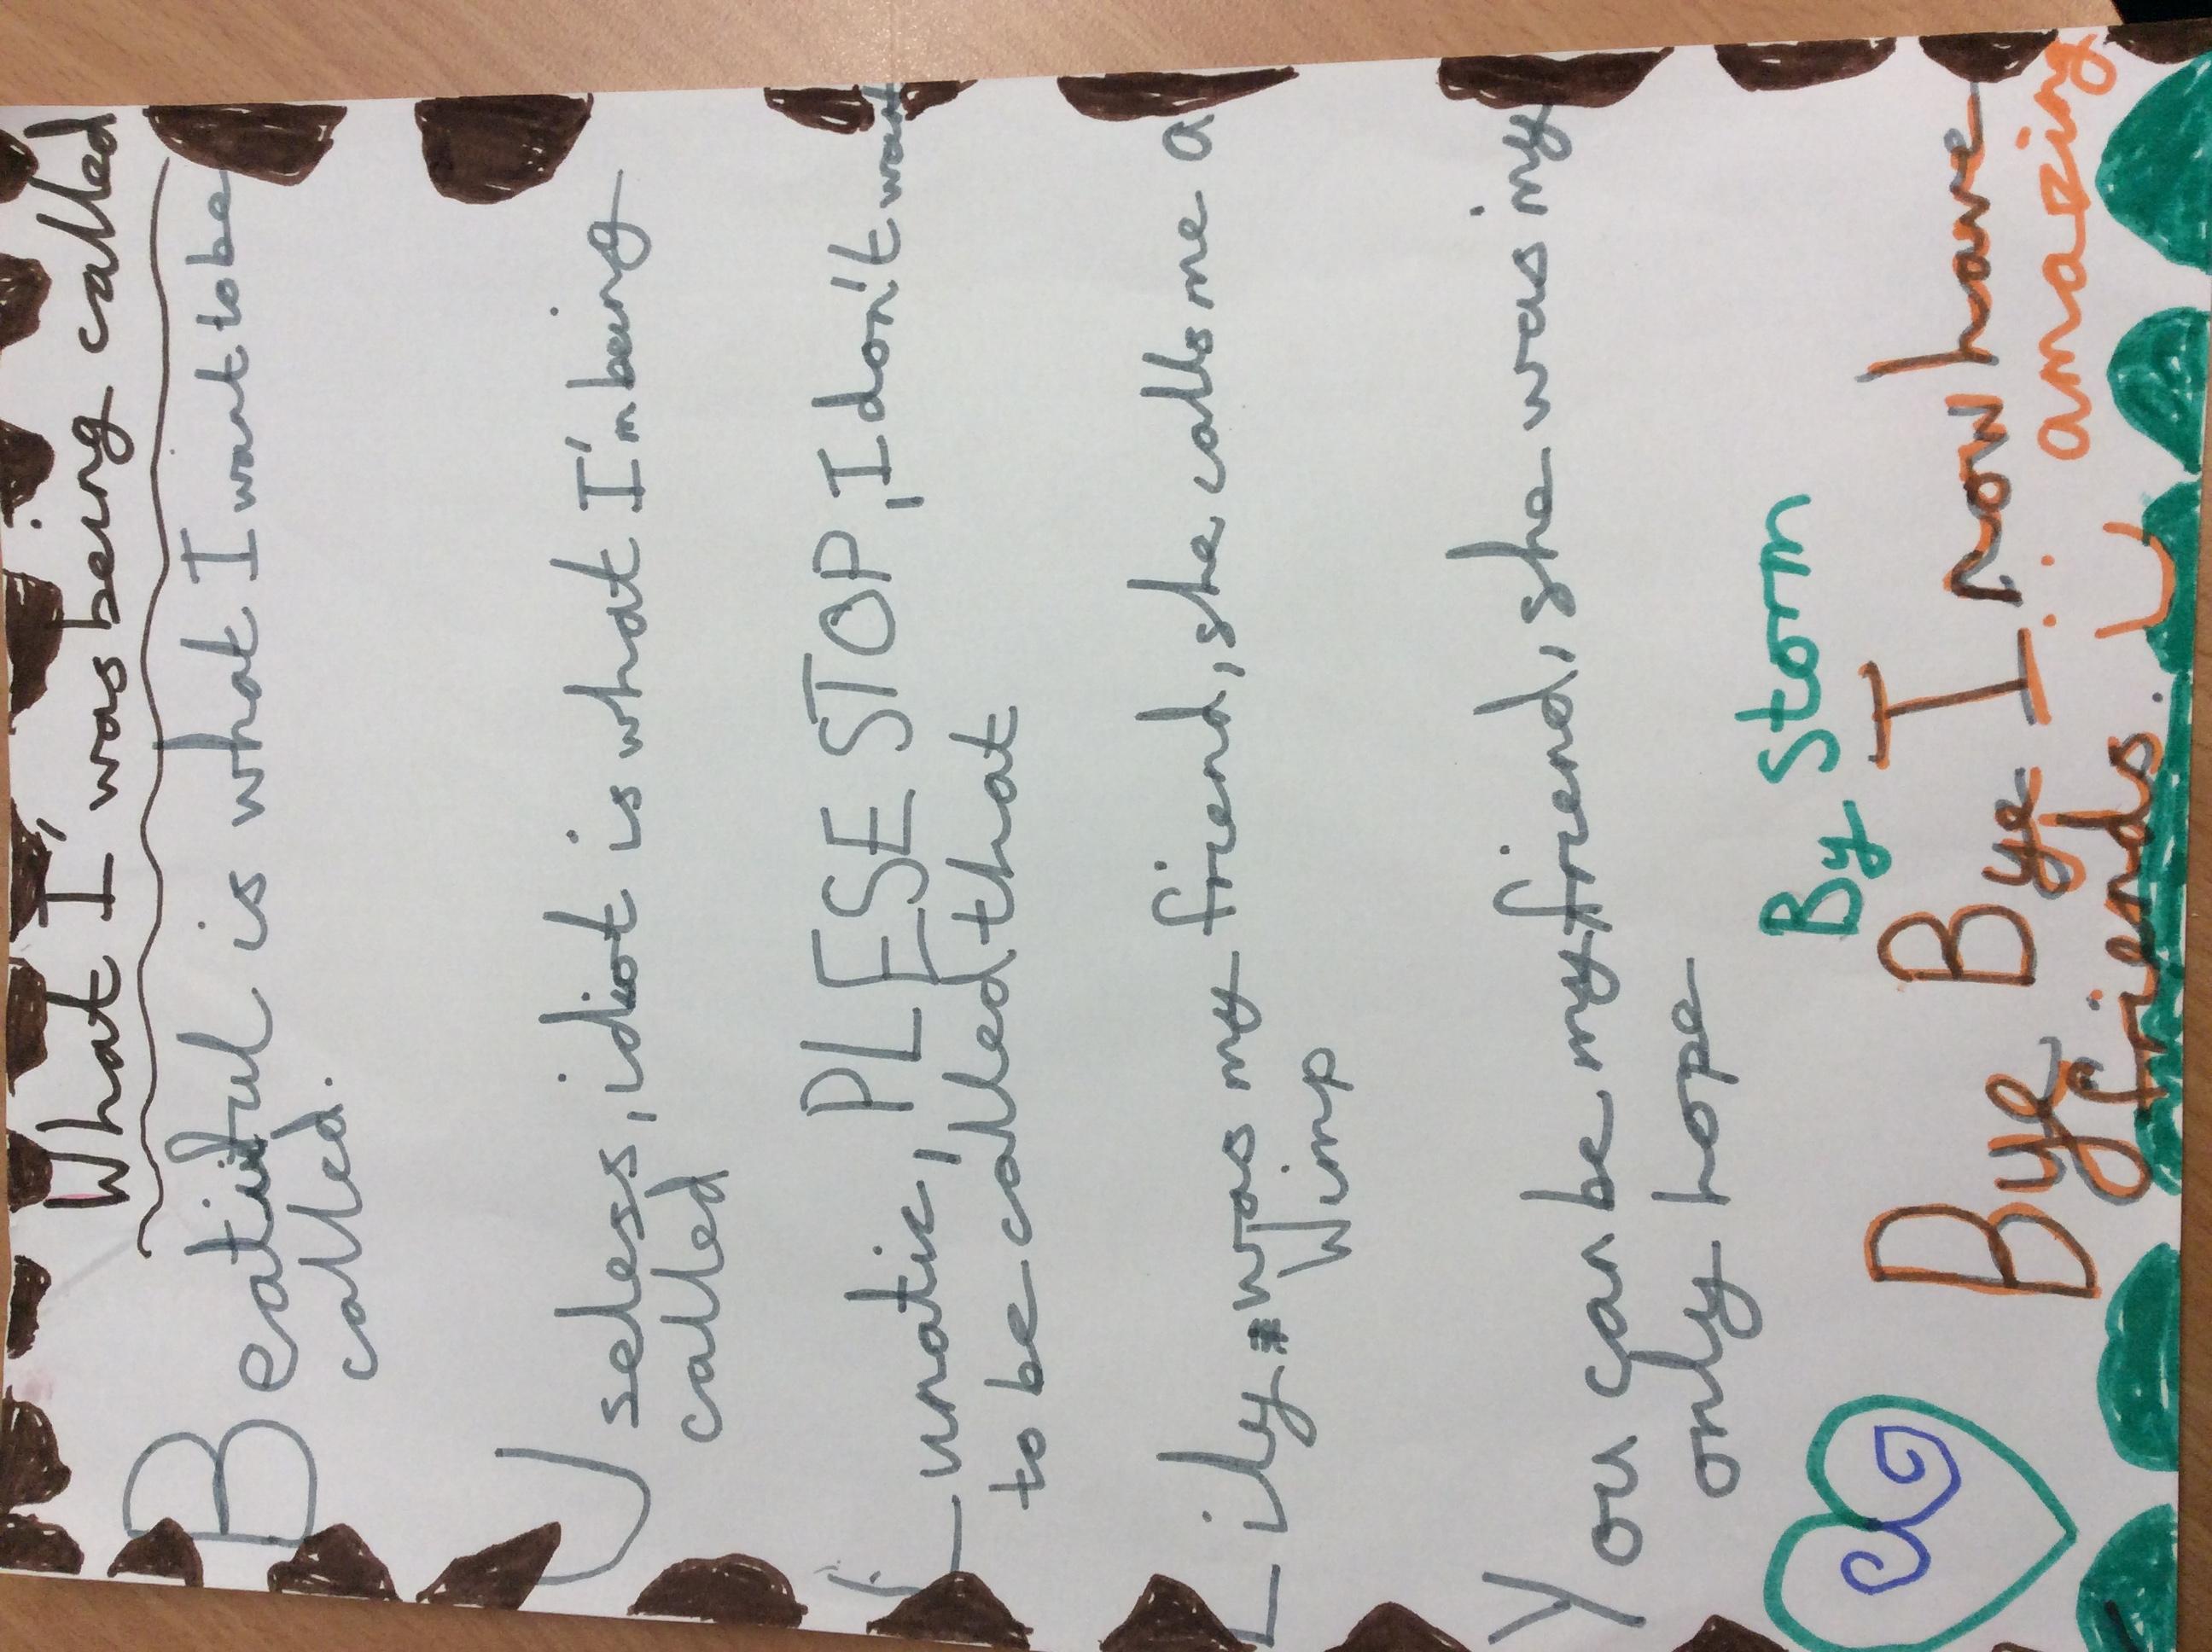 What I' was being called
Beatiful is what I want to be
called.
Useless, idiot is what I'm being
called
Lunatic, PLESE STOP, I don't want
to be called that
Lily was my friend, she calls me a
Wimp
You can be my friend, she was my
only hope
By Storm
Bye Bye I now have
amazing
friends. :)